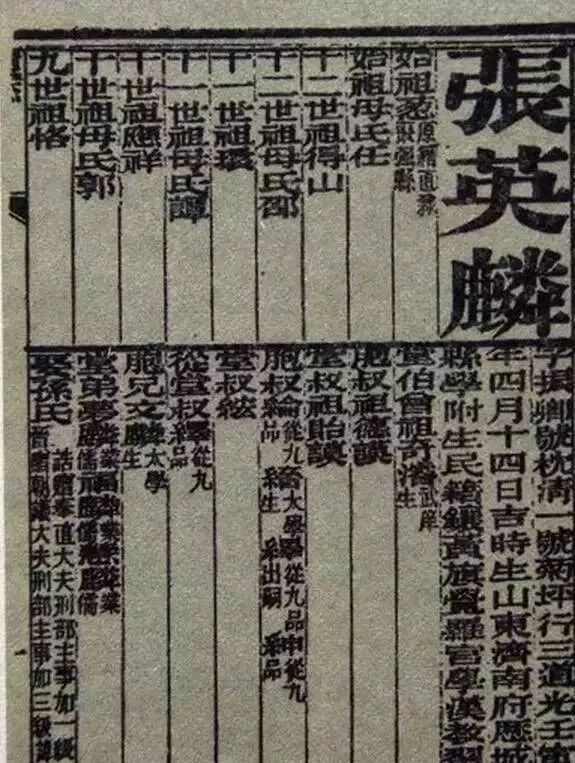 張英麟
始祖原籍直隸
縣
始祖母氏任
十二世祖得山
十二世祖母氏邵
十一世祖環
十一世祖母氏譚
十世祖應祥
十世祖母氏郭
九世祖恪
字振卿號枕清一號菊坪行三道光
年四月十四日吉時生山東濟南府歷城
縣學附生民籍鑲黃旗覺羅官學漢教習
堂伯曾祖奇濬武庠生
胞叔祖德謨
堂叔祖貽謨
胞叔綸從九品 太學生 從九品 出嗣 從九品
堂叔紘
從堂叔繹從九品
胞兄文麟太學生
堂弟夢麟業儒
娶孫氏誥贈奉直大夫刑部主事加一級
晉贈朝議大夫刑部主事加三級諱